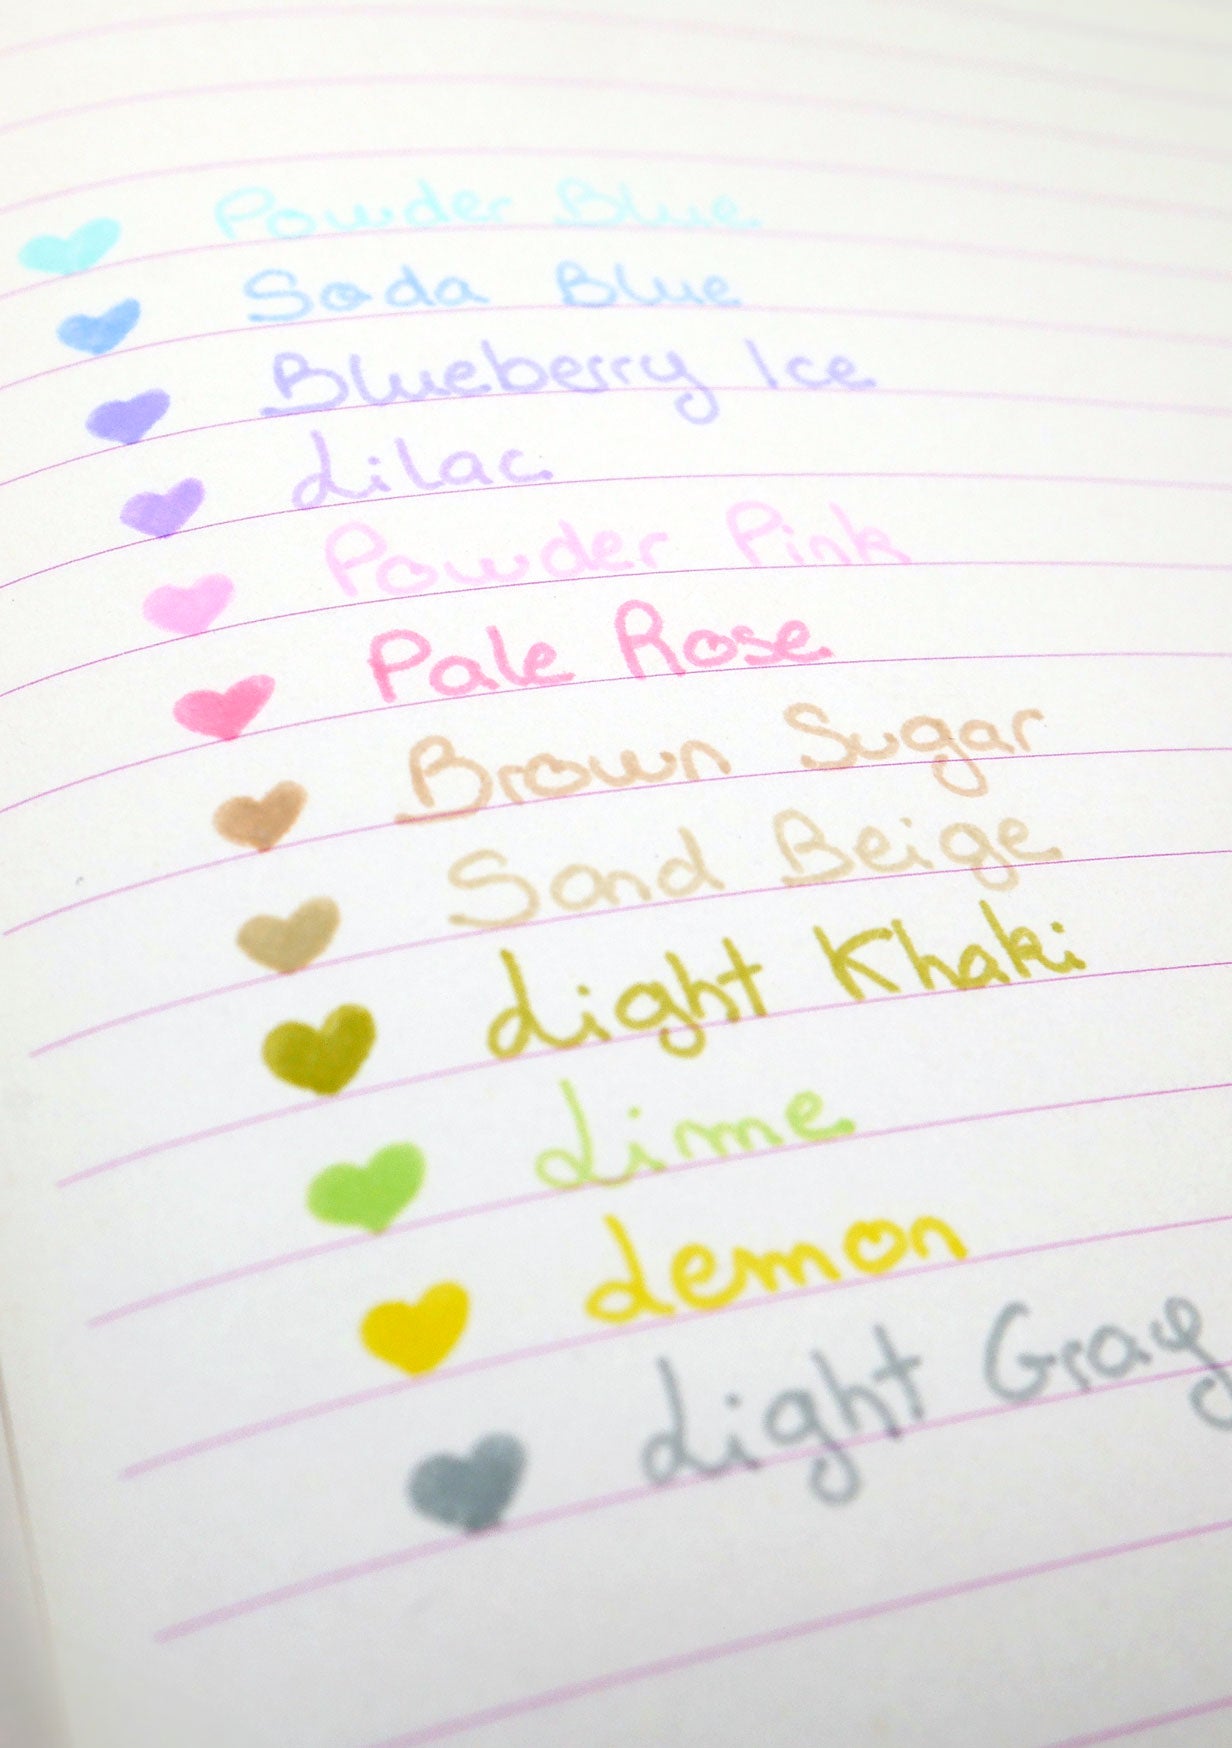 Powder Blue
Soda Blue
Blueberry Ice
Lilac
Powder Pink
Pale Rose
Brown Sugar
Sand Beige
Light Khaki
Lime
Lemon
Light Gray